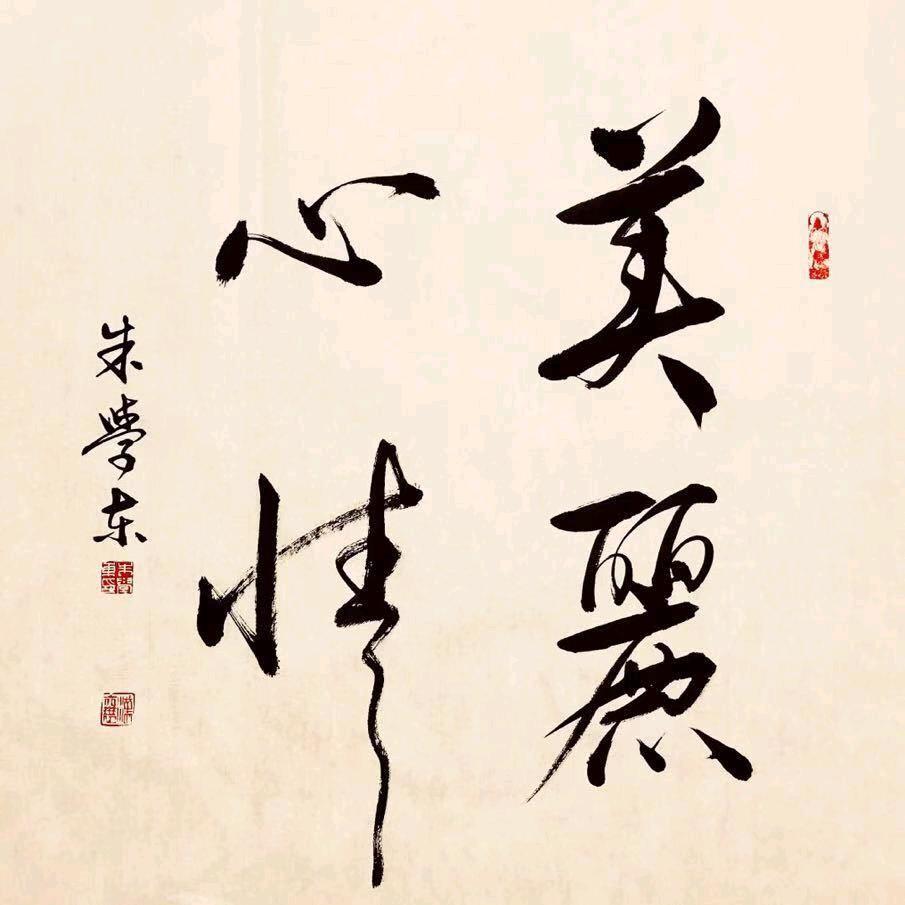 美麗
心情
朱學东